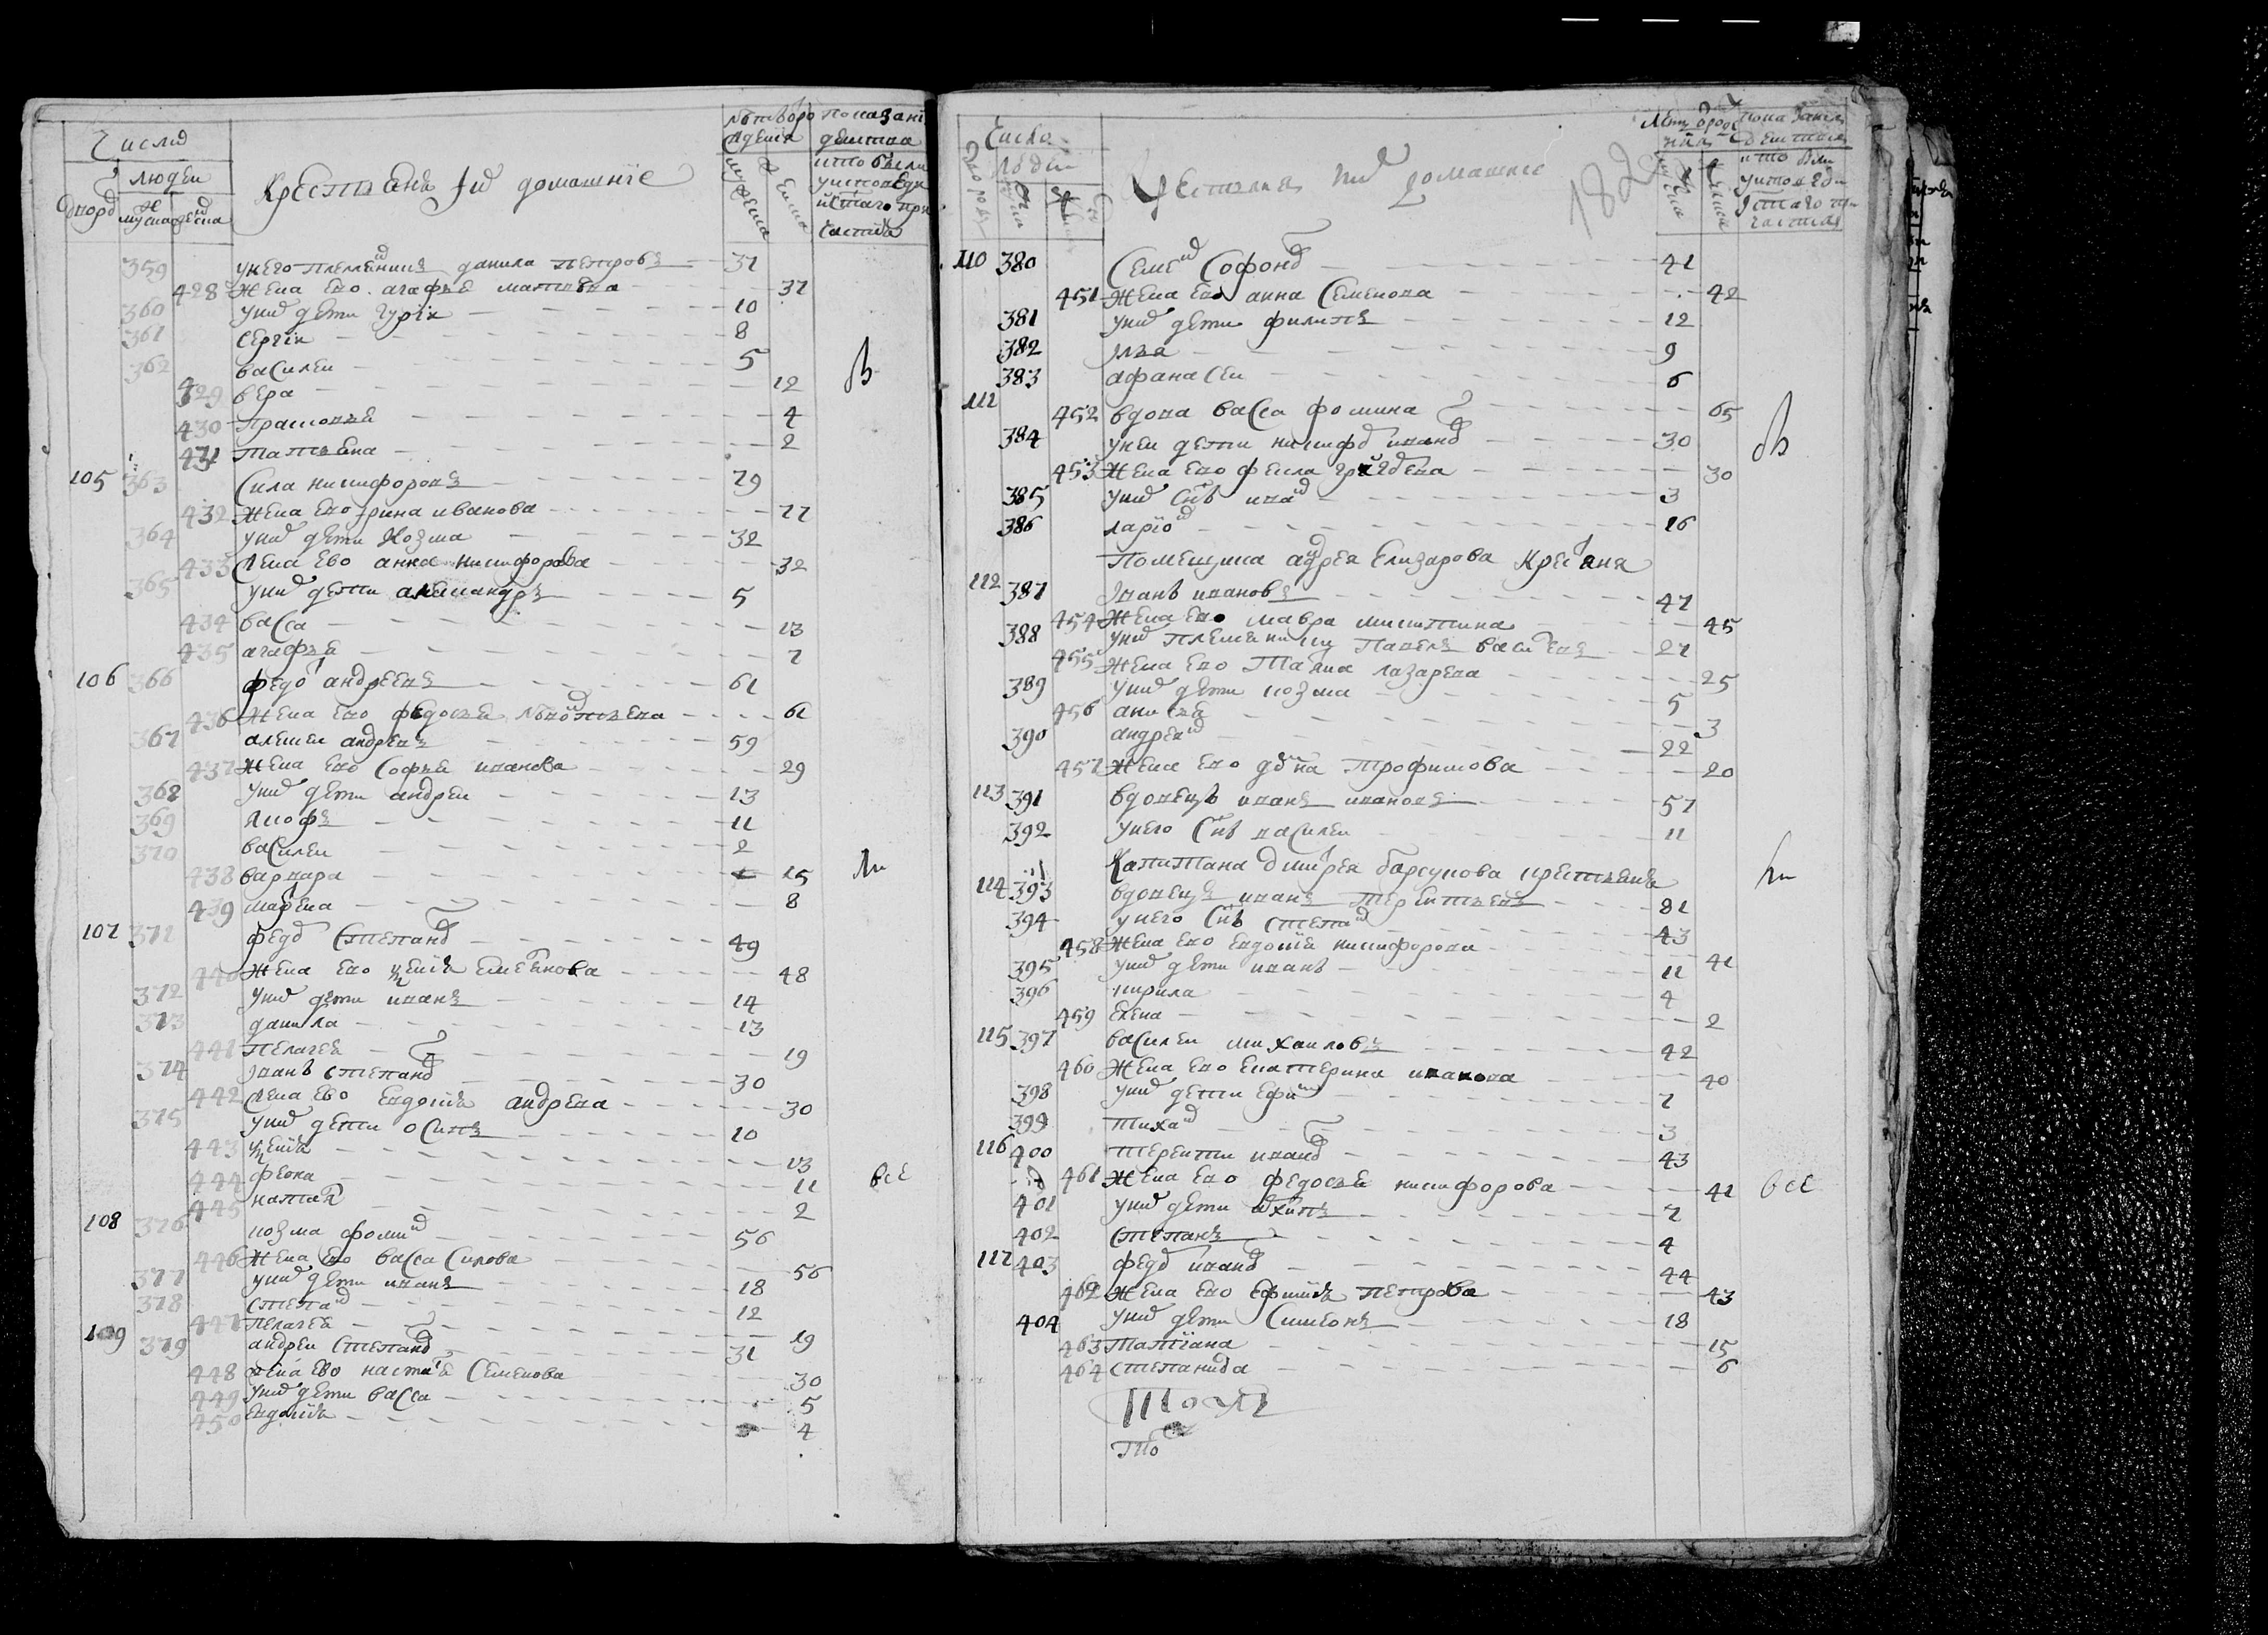 Числа
людеи
дворов
мужска
женска
Крестьяне и их домашние
Лѣт
показание
действа
кто были
у исповеди
и святаго при
частия
359 у него племянник данила петровъ 31
428 жена ево агафья матвеева 31
360 у них дети гурiи 10
361 сергiи 8
362 василеи 5
429 вера 12
430 прасковья 4
431 татьяна 2
105 363 Сила никифоровъ 79
432 жена ево ирина иванова 77
364 у них дети козма 32
433 жена ево анна никифорова 32
365 у них дети александръ 5
434 васса 13
435 агафья 7
106 366 федор андреевъ 61
436 жена ево федосья 61
367 алексеи андреевъ 59
437 жена ево софья иванова 29
368 у них дети андреи 13
369 иосифъ 11
370 василеи 2
438 варвара 15
439 марфа 8
107 371 федор степанов 49
440 жена ево ксения 48
372 у них дети иванъ 14
373 данила 13
441 пелагея 19
374 иванъ степанов 30
442 жена ево евдокия андреева 30
375 у них дети осипъ 10
443 ксения 13
444 фекла 11
445 наталя 2
108 376 козма фомин 56
446 жена ево васса силова 56
377 у них дети иванъ 18
378 степан 12
447 пелагея 19
109 379 андреи степанов 31
448 жена ево настасья семенова 30
449 у них дети васса 5
450 евдокия 4
вс
ли
все
Число
людеи
Крестьяня и их домашние
182
110 380 Семен Софонов 41
451 жена ево анна семенова 42
381 у них дети филипъ 12
382 илья 9
383 афанасеи 6
111 452 вдова васса фомина 65
384 у неи дети никифор иванов 30
453 жена ево фекла 30
385 у них сынъ иван 3
386 ларион 16
Помещика андрея Елизарова крестьяня
112 387 иванъ ивановъ 47
454 жена ево мавра никитина 45
388 у них племянник павелъ васильевъ 27
455 жена ево татьяна лазарева 25
389 у них дети козма 5
456 анисья 3
390 андреян 22
457 жена ево трофимова 20
113 391 вдовецъ иванъ ивановъ 57
392 у него сынъ василеи 11
Капитана дмитрея барсукова крестьяня
114 393 вдовецъ иванъ терентьевъ 81
394 у него сынъ степан 43
458 жена ево евдокия никифорова 41
395 у них дети иванъ 11
396 кирила 4
459 елена 2
115 397 василеи михаиловъ 42
460 жена ево екатерина иванова 40
398 у них дети ефим 7
399 тихан 3
116 400 терентеи иванов 43
461 жена ево федосья никифорова 41
401 у них дети архипъ 7
402 степанъ 4
117 403 федор иванов 44
462 жена ево ефимия петрова 43
404 у них дети симеонъ 18
463 татiана 15
464 степанида 6
вс
ли
все